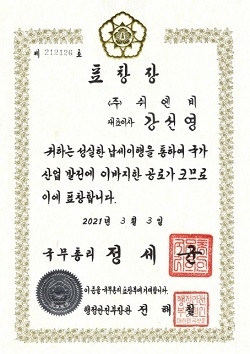 제 212126 호
표 창 장
(주) 쉬엔비
대표이사 강선영
귀하는 성실한 납세이행을 통하여 국가
산업 발전에 이바지한 공로가 크므로
이에 표창합니다.
2021년 3월 3일
국무총리 정세균
이 증을 국무총리 표창부에 기재합니다.
행정안전부장관 전해철